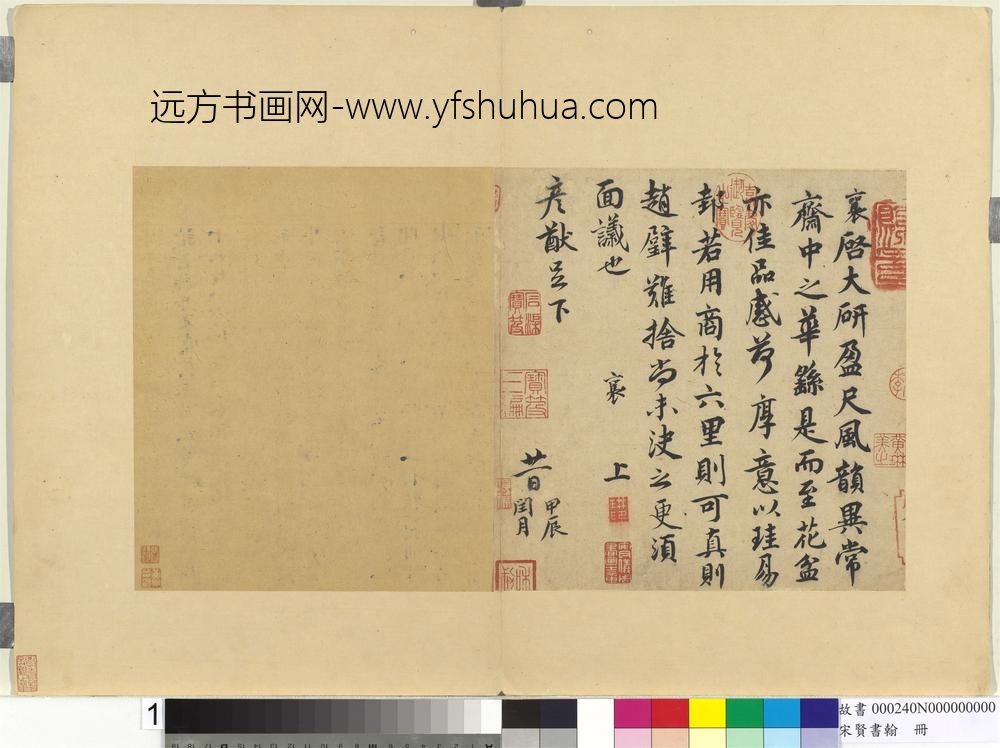 远方书画网-www.yfshuhua.com
襄啓大研盈尺風韻異常
齋中之華繇是而至花盆
亦佳品感荷厚意以珪易
邽若用商於六里則可真則
趙璧難捨尚未決之更須
面議也 襄 上
彦猷足下
廿一日 甲辰
閏月
1
故書 000240N000000000
宋賢書翰 冊